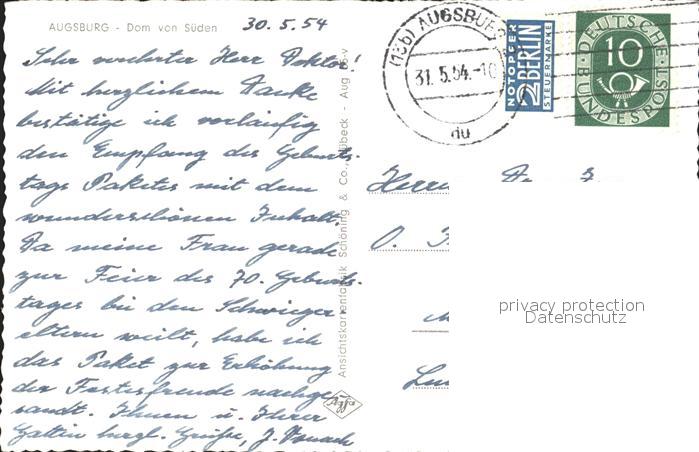 AUGSBURG - Dom von Süden
30.5.54
Sehr verehrter Herr Doktor!
Mit herzlichem Danke
bestätige ich vorläufig
den Empfang des Geburts-
tags Paketes mit dem
wunderschönen Inhalt.
Da meine Frau gerade
zur Feier des 70. Geburts-
tages bei den Schwieger
eltern weilt, habe ich
das Paket zur Erhöhung
der Festesfreude nachge
sandt. Ihnen u. Ihrer
Gattin herzl. Grüsse, J.
Ansichtskartenfabrik Schöning & Co., Lübeck - Aug
(13b) AUGSBURG
31.5.54.-10
NOTOPFER
2 BERLIN
STEUERMARKE
DEUTSCHE
10
BUNDESPOST
Herrn
O.
privacy protection
Datenschutz